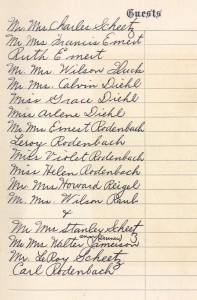 Guests
Mr. Mrs Charles Scheetz
Mr Mrs Francis Emert
Ruth Emert
Mr. Mrs. Wilson Fluck
Mr Mrs. Calvin Diehl
Miss Grace Diehl
Miss Arlene Diehl
Mr Mrs Ernest Rodenbach
Leroy Rodenbach
Miss Violet Rodenbach
Miss Helen Rodenbach
Mr. Mrs Howard Reigel
Mr. Mrs. Wilson Raub
&
Mr Mrs Stanley Scheetz
Mr Mrs Walter Jamerson
Mr. LeRoy Scheetz
Carl Rodenbach